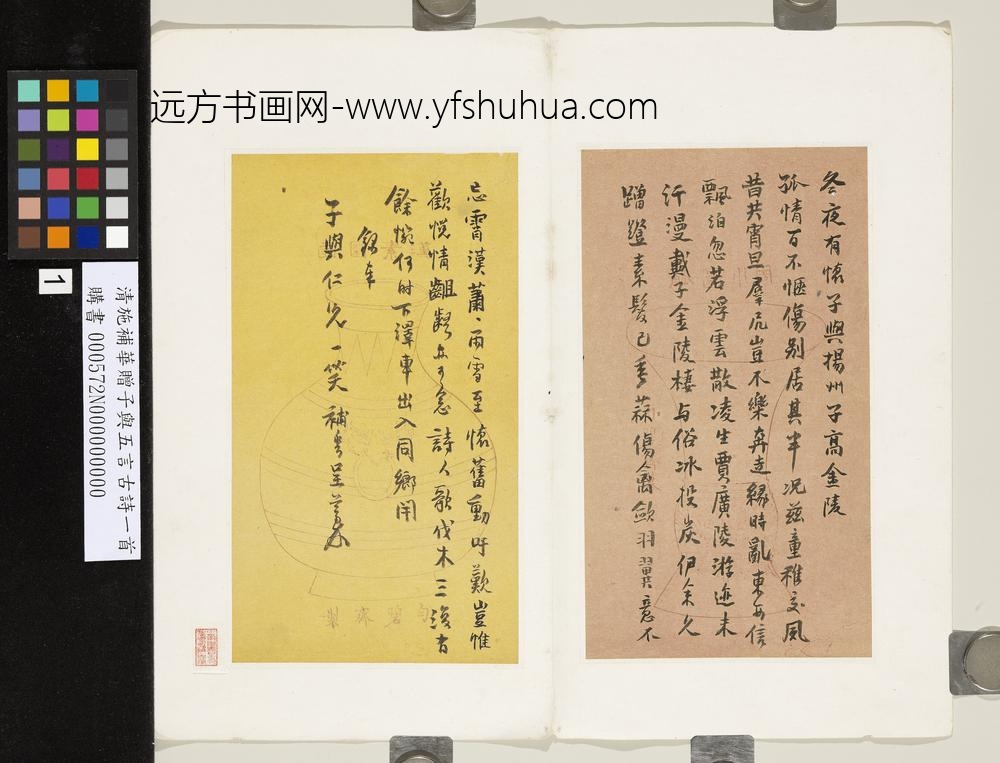 远方书画网-www.yfshuhua.com
冬夜有懷子與揚州子高金陵
孤情百不愜傷別居其半况茲童稚交風
昔共宵旦羣凥豈不樂奔走緣時亂東西信
飄泊忽若浮雲散凌生賈廣陵游迹未
汗漫戴子金陵棲与俗冰投炭伊余久
蹭蹬素髮已垂蒜傷禽歛羽翼意不
忘霄漢蕭、雨雪至懷舊動吁歎豈惟
歡悦情齟齬亦可念詩人歌伐木三復有
餘惋何時下澤車出入同鄉閈
錄奉
子與仁兄一笑 補華呈草
1
清施補華贈子與五言古詩一首
購書 000572N000000000